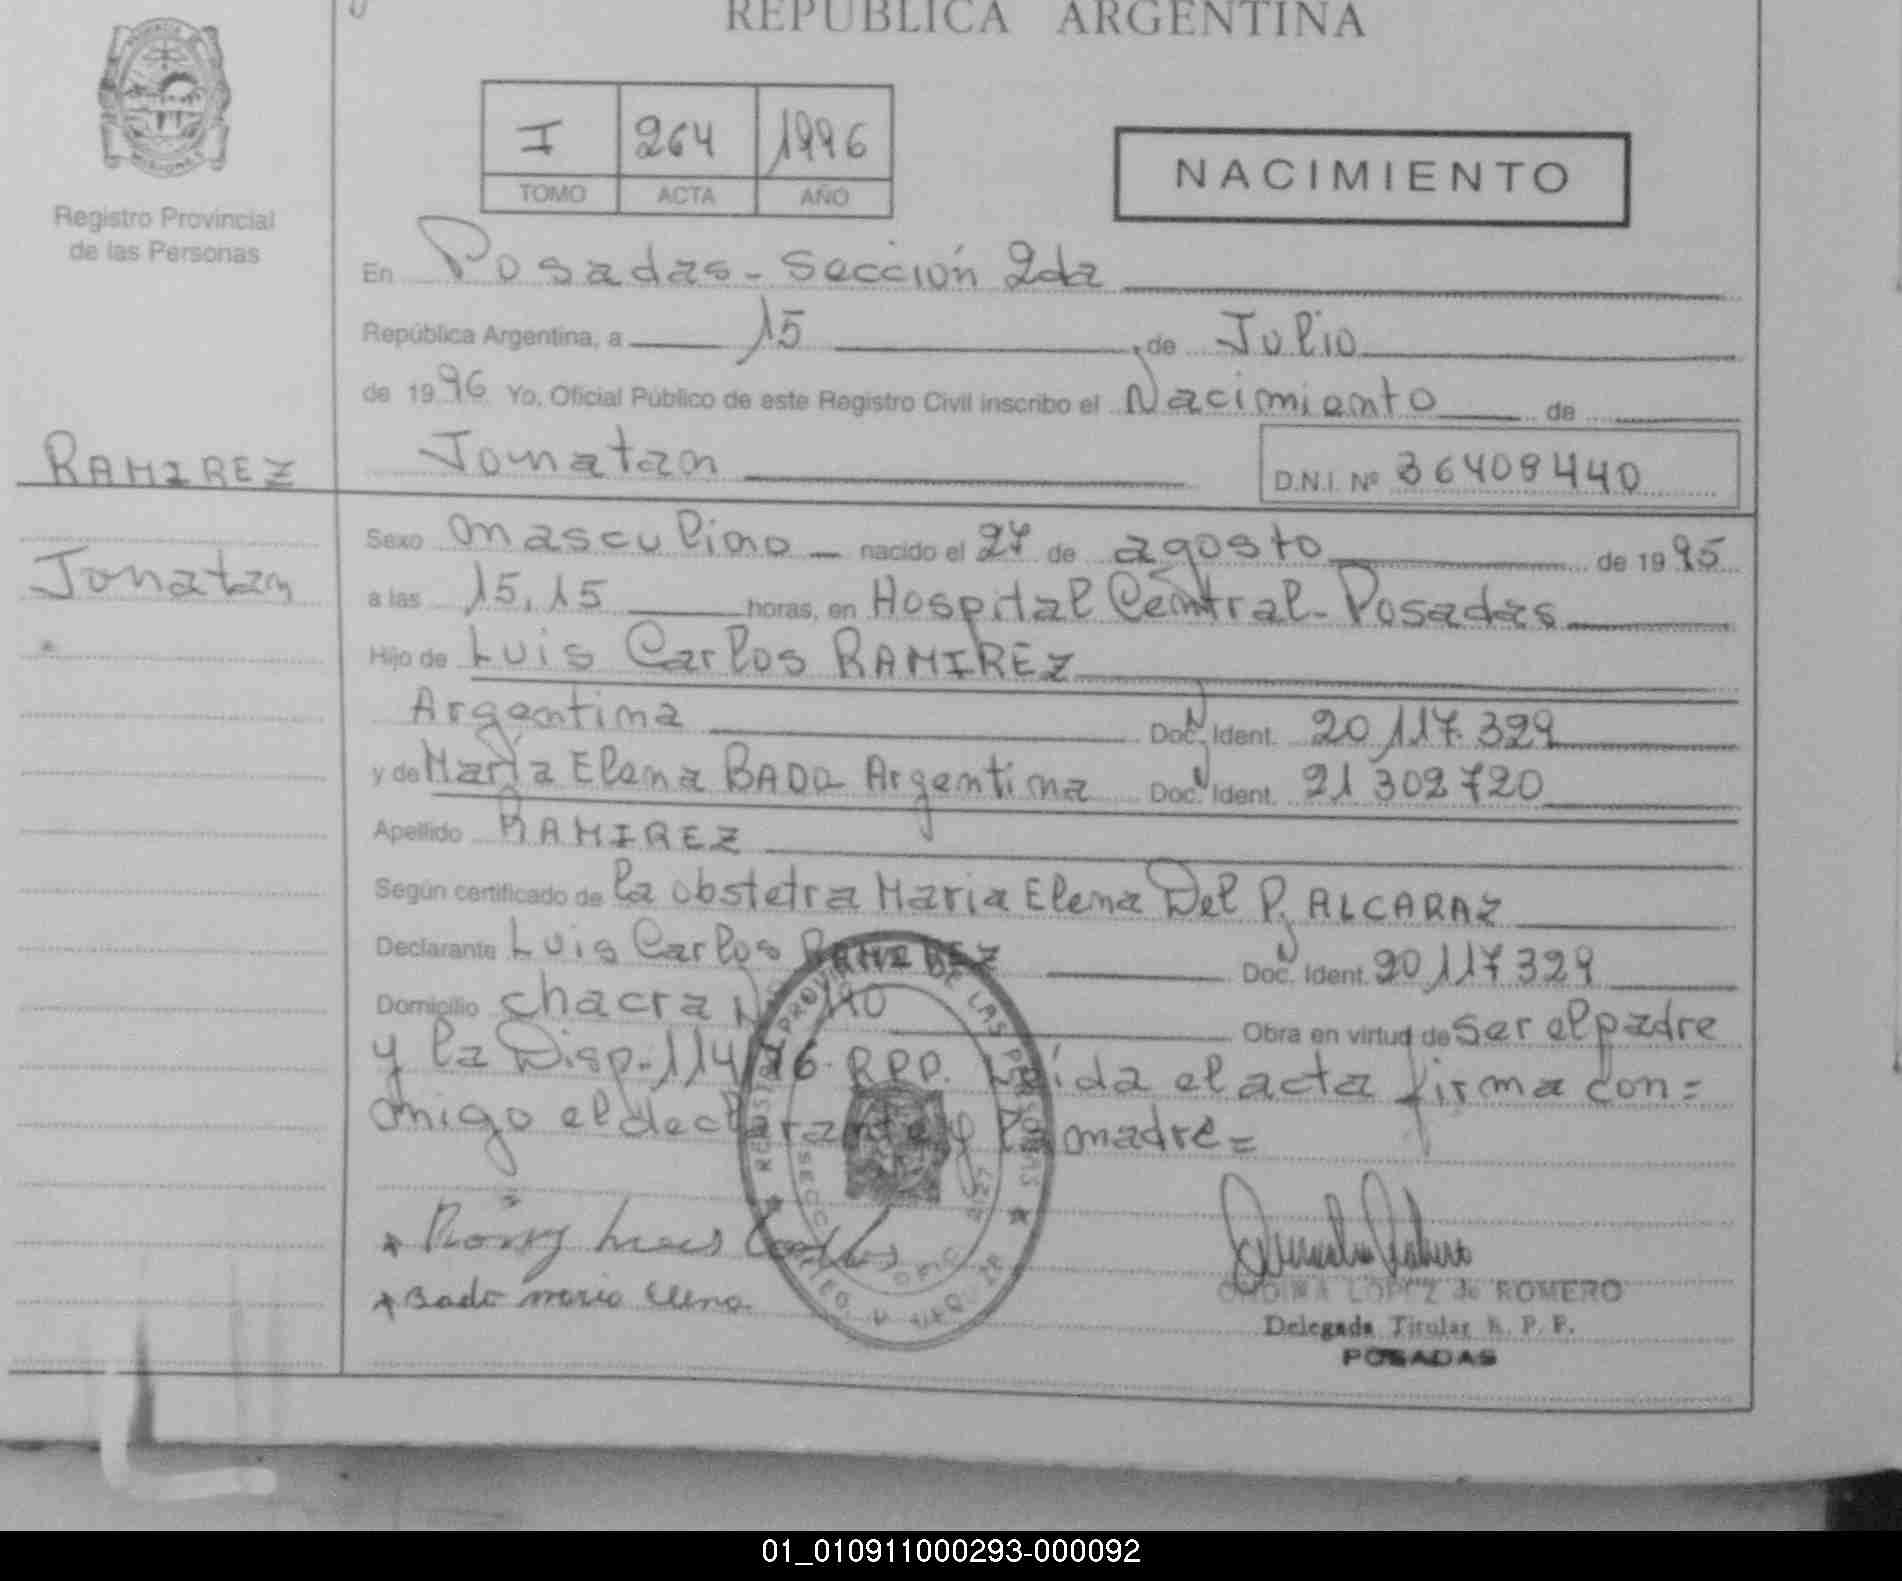 REPUBLICA ARGENTINA
I 264 1996
TOMO ACTA AÑO
NACIMIENTO
Registro Provincial
de las Personas
En Posadas - Sección 2da
República Argentina, a 15 de Julio
de 1996 Yo, Oficial Público de este Registro Civil inscribo el Nacimiento de
RAMIREZ
Jonatan
Jonatan
D.N.I. Nº 36409440
Sexo masculino nacido el 27 de agosto de 1995
a las 15,15 horas, en Hospital Central - Posadas
Hijo de Luis Carlos RAMIREZ
Argentina Doc. Ident. 20.117.329
y de María Elena BADO Argentina Doc. Ident. 21 302 720
Apellido RAMIREZ
Según certificado de la obstetra Maria Elena Del P. ALCARAZ
Declarante Luis Carlos RAMIREZ Doc. Ident. 20.117329
Domicilio chacra Nº 140 Obra en virtud de ser el padre
y la Disp. 114/96. R.P.P. Leída el acta firma con=
migo el declarante y la madre=
Bado maria elena
LOPEZ de ROMERO
Delegada Titular R. P. P.
POSADAS
01_010911000293-000092